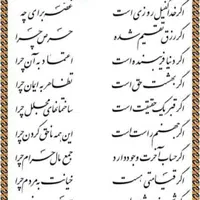 اگر خدا کفیل روزی است غصه برای چه
اگر رزق تقسیم شده حرص چرا
اگر دنیا فریبنده است اعتماد به آن چرا
اگر بهشت حق است تظاهر به ایمان چرا
اگر قبر یک حقیقت است ساختمانهای مجلل چرا
اگر جهنم راست است این همه ناحق کردن چرا
اگر حساب آخرت وجود دارد جمع مال حرام چرا
اگر قیامتی هست خیانت به مردم چرا